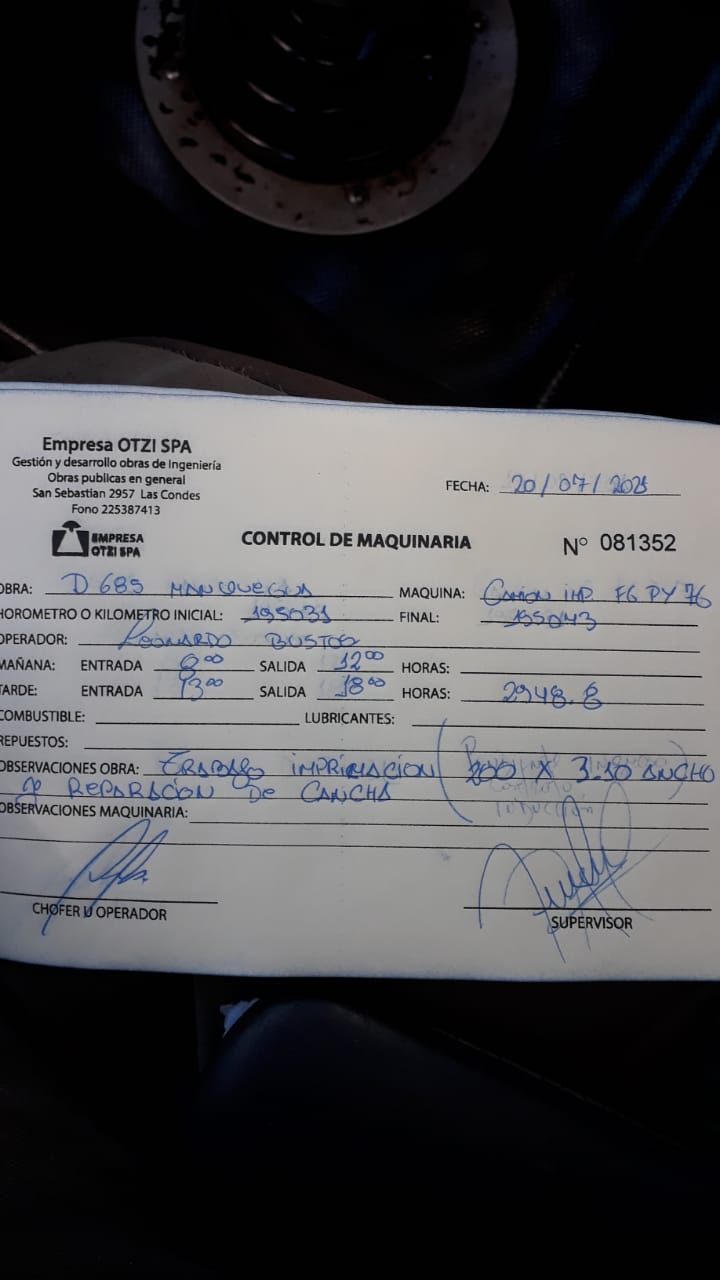 Empresa OTZI SPA
Gestión y desarrollo obras de Ingeniería
Obras publicas en general
San Sebastian 2957 Las Condes
Fono 225387413
FECHA: 20/07/2021
EMPRESA
OTZI SPA
CONTROL DE MAQUINARIA
Nº 081352
OBRA: D 685 MANQUEGUA MAQUINA: Camion imp. FG PY 76
HOROMETRO O KILOMETRO INICIAL: 195031 FINAL: 195043
OPERADOR: Leonardo BUSTOS
MAÑANA: ENTRADA 8:00 SALIDA 12:00 HORAS:
TARDE: ENTRADA 13:00 SALIDA 18:00 HORAS: 2948.8
COMBUSTIBLE: LUBRICANTES:
REPUESTOS:
OBSERVACIONES OBRA: TRABAJO IMPRIMACION 200 X 3.10 ANCHO
REPARACION De CANCHA
OBSERVACIONES MAQUINARIA:
CHOFER U OPERADOR
SUPERVISOR